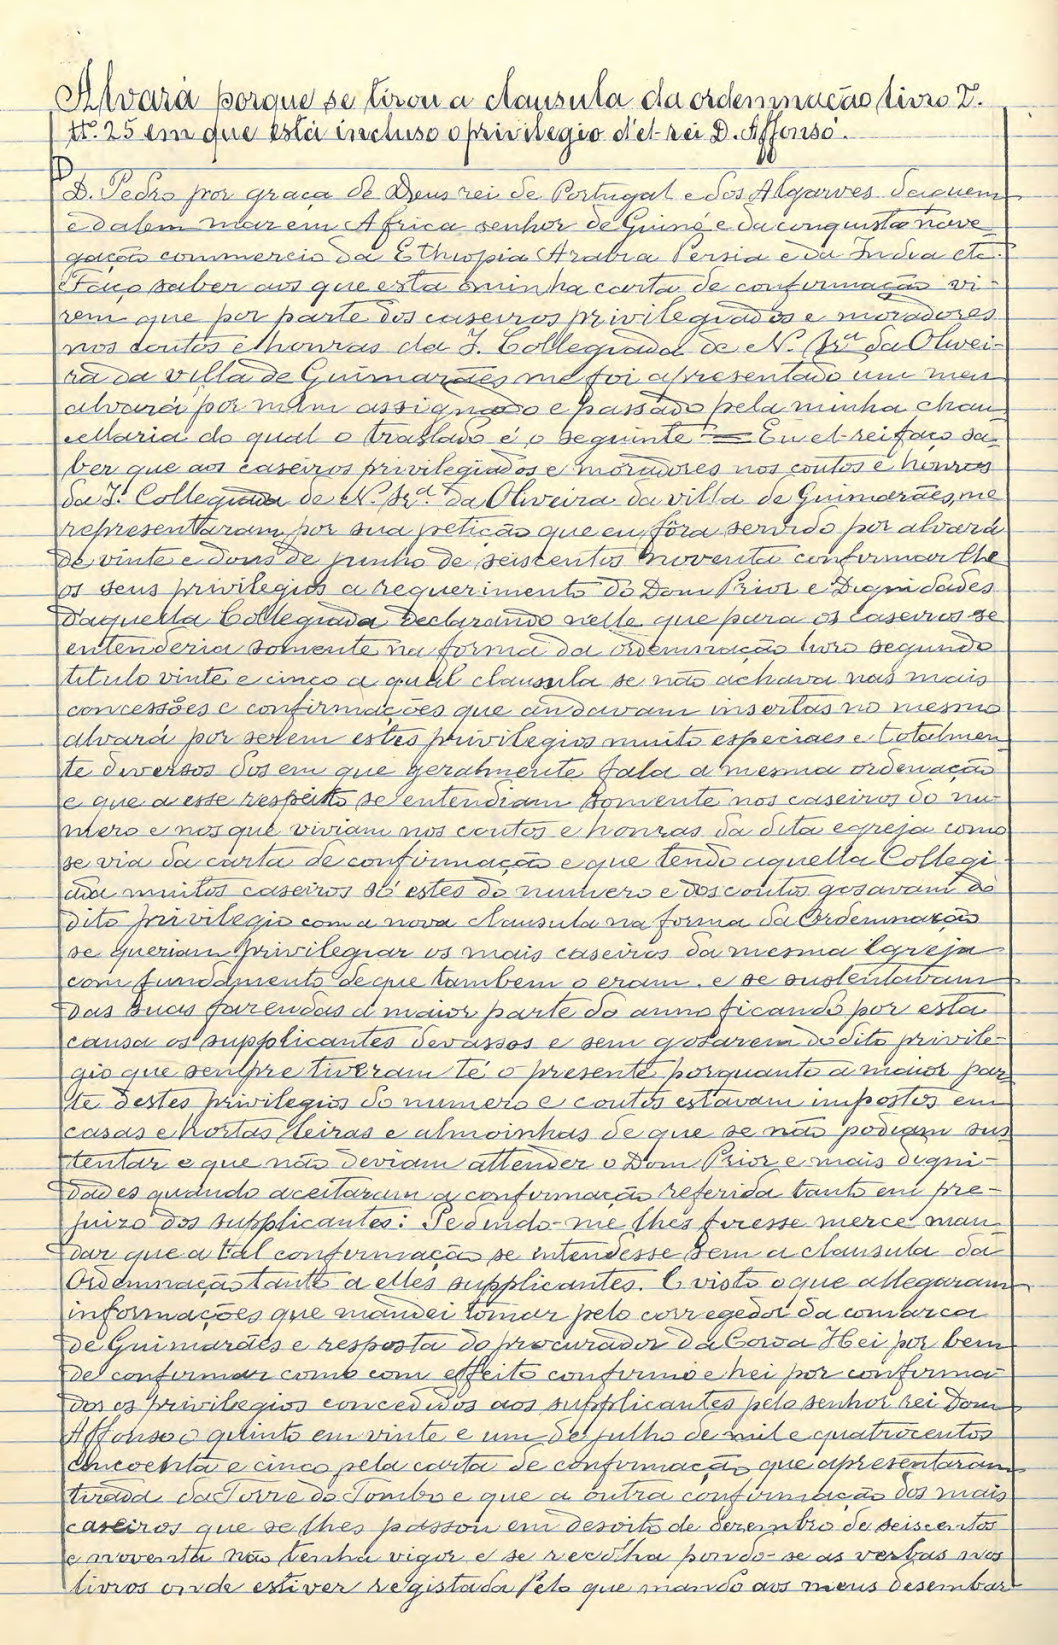 Alvará porque se tirou a clausula da ordemnação livro 2.
tt.º 25 em que está incluso o privilegio d'el-rei D. Affonso.
D. Pedro por graça de Deus rei de Portugal e dos Algarves daquem
e dalem mar em Africa senhor de Guiné e da conquista nave-
gação commercio da Ethiopia Arabia Persia e da India etc.
Faço saber aos que esta minha carta de confirmação vi-
rem que por parte dos caseiros privilegiados e moradores
nos coutos e honras da I. Collegiada de N. Sr.ª da Olivei-
ra da villa de Guimarães me foi apresentado um meu
alvará por mim assignado e passado pela minha chan-
cellaria do qual o traslado é o seguinte = Eu el-rei faço sa-
ber que aos caseiros privilegiados e moradores nos coutos e honras
da I. Collegiada de N. Sr.ª da Oliveira da villa de Guimarães, me
representaram por sua petição que eu fôra servido por alvará
de vinte e dous de junho de seiscentos noventa confirmar lhe
os seus privilegios a requerimento do Dom Prior e Dignidades
d'aquella Collegiada declarando nelle que para os caseiros se
entenderia somente na forma da ordemnação livro segundo
titulo vinte e cinco a qual clausula se não achava nas mais
concessões e confirmações que andavam insertas no mesmo
alvará por serem estes privilegios muito especiaes e totalmen-
te diversos dos em que geralmente fala a mesma ordenação
e que a esse respeito se entendiam somente nos caseiros do nu-
mero e nos que viviam nos coutos e honras da dita egreja como
se via da carta de confirmação e que tendo aquella Collegi-
ada muitos caseiros só estes do numero e dos coutos gosavam do
dito privilegio com a nova clausula na forma da Ordemnação
se queriam privilegiar os mais caseiros da mesma Egreja
com fundamento de que tambem o eram. e se sustentavam
das suas fazendas a maior parte do anno ficando por esta
causa os supplicantes devassos e sem gosarem do dito privile-
gio que sempre tiveram té o presente porquanto a maior par-
te destes privilegios do numero e coutos estavam impostos em
casas e hortas leiras e almoinhas de que se não podiam sus-
tentar e que não deviam attender o Dom Prior e mais digni-
dades quando aceitaram a confirmação referida tanto em pre-
juizo dos supplicantes: Pedindo-me lhes fizesse merce man-
dar que a tal confirmação se intendesse sem a clausula da
Ordemnação tanto a elles supplicantes. E visto o que allegaram
informações que mandei tomar pelo corregedor da comarca
de Guimarães e resposta do procurador da Coroa Hei por bem
de confirmar como com effeito confirmo e hei por confirma-
dos os privilegios concedidos aos supplicantes pelo senhor rei Dom
Affonso o quinto em vinte e um de julho de mil e quatrocentos
cincoenta e cinco pela carta de confirmação que apresentaram
tirada da Torre do Tombo e que a outra confirmação dos mais
caseiros que se lhes passou em desoito de dezembro de seiscentos
e noventa não tenha vigor e se recolha pondo-se as verbas nos
livros onde estiver registada Pelo que mando aos meus desembar-